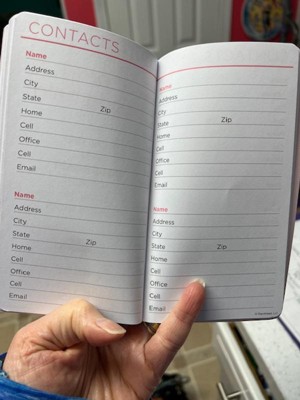 CONTACTS
Name
Address
City
State Zip
Home
Cell
Office
Cell
Email
Name
Address
City
State Zip
Home
Cell
Office
Cell
Email
Name
Address
City
State Zip
Home
Cell
Office
Cell
Email
Name
Address
City
State Zip
Home
Cell
Office
Cell
Email